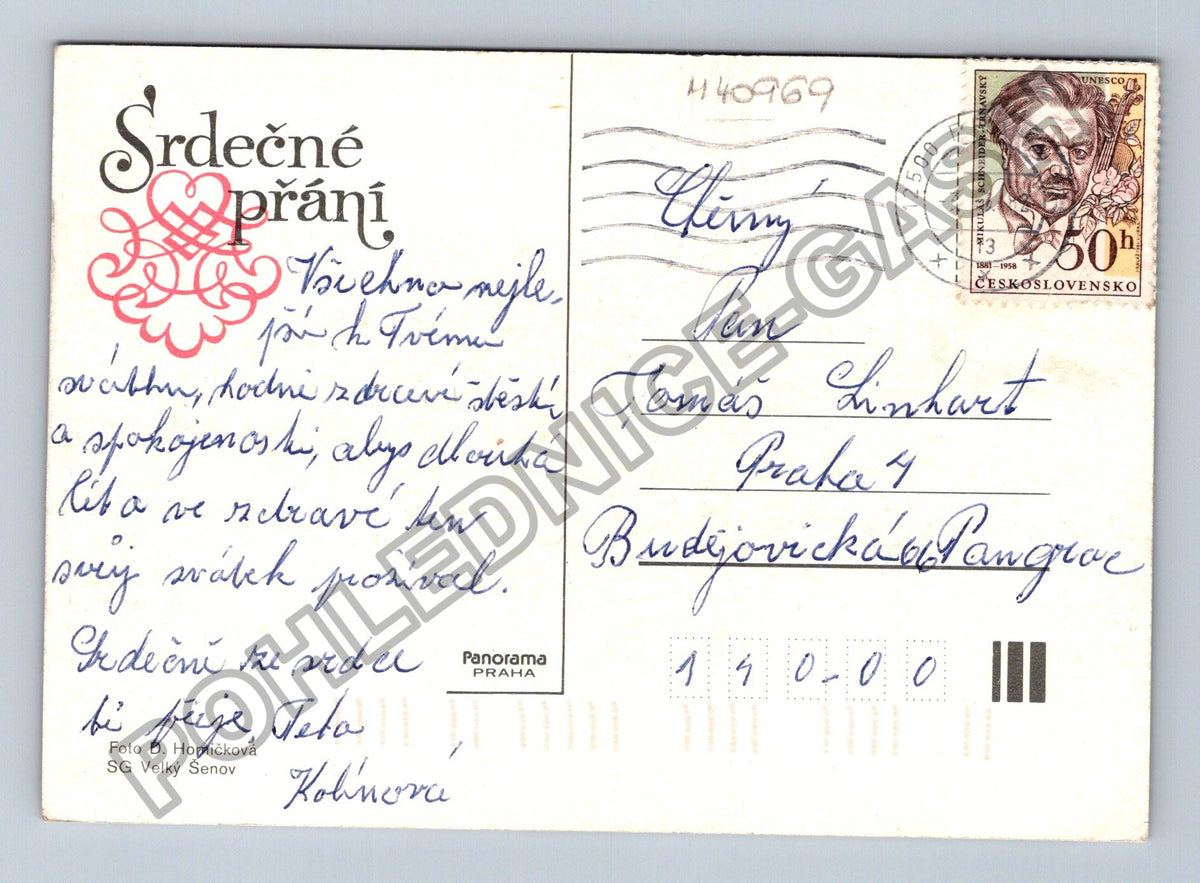 Srdečné
přání
Všechno nejle-
pší k Tvému
svátku, hodně zdraví štěstí
a spokojenosti, abys dlouhá
léta ve zdraví ten
svůj svátek prožíval.
Srdečně ze srdce
ti přeje Teta
Kolínová
Foto D. Homičková
SG Velký Šenov
Panorama
PRAHA
H 40969
Ctěný
Pan
Tomáš Linhart
Praha 4
Budějovická 66 Pangrac
140-00
UNESCO
MIKULÁŠ SCHNEIDER-TRNAVSKÝ
1881–1958
50h
ČESKOSLOVENSKO
13
POHLEDNICE-GASA